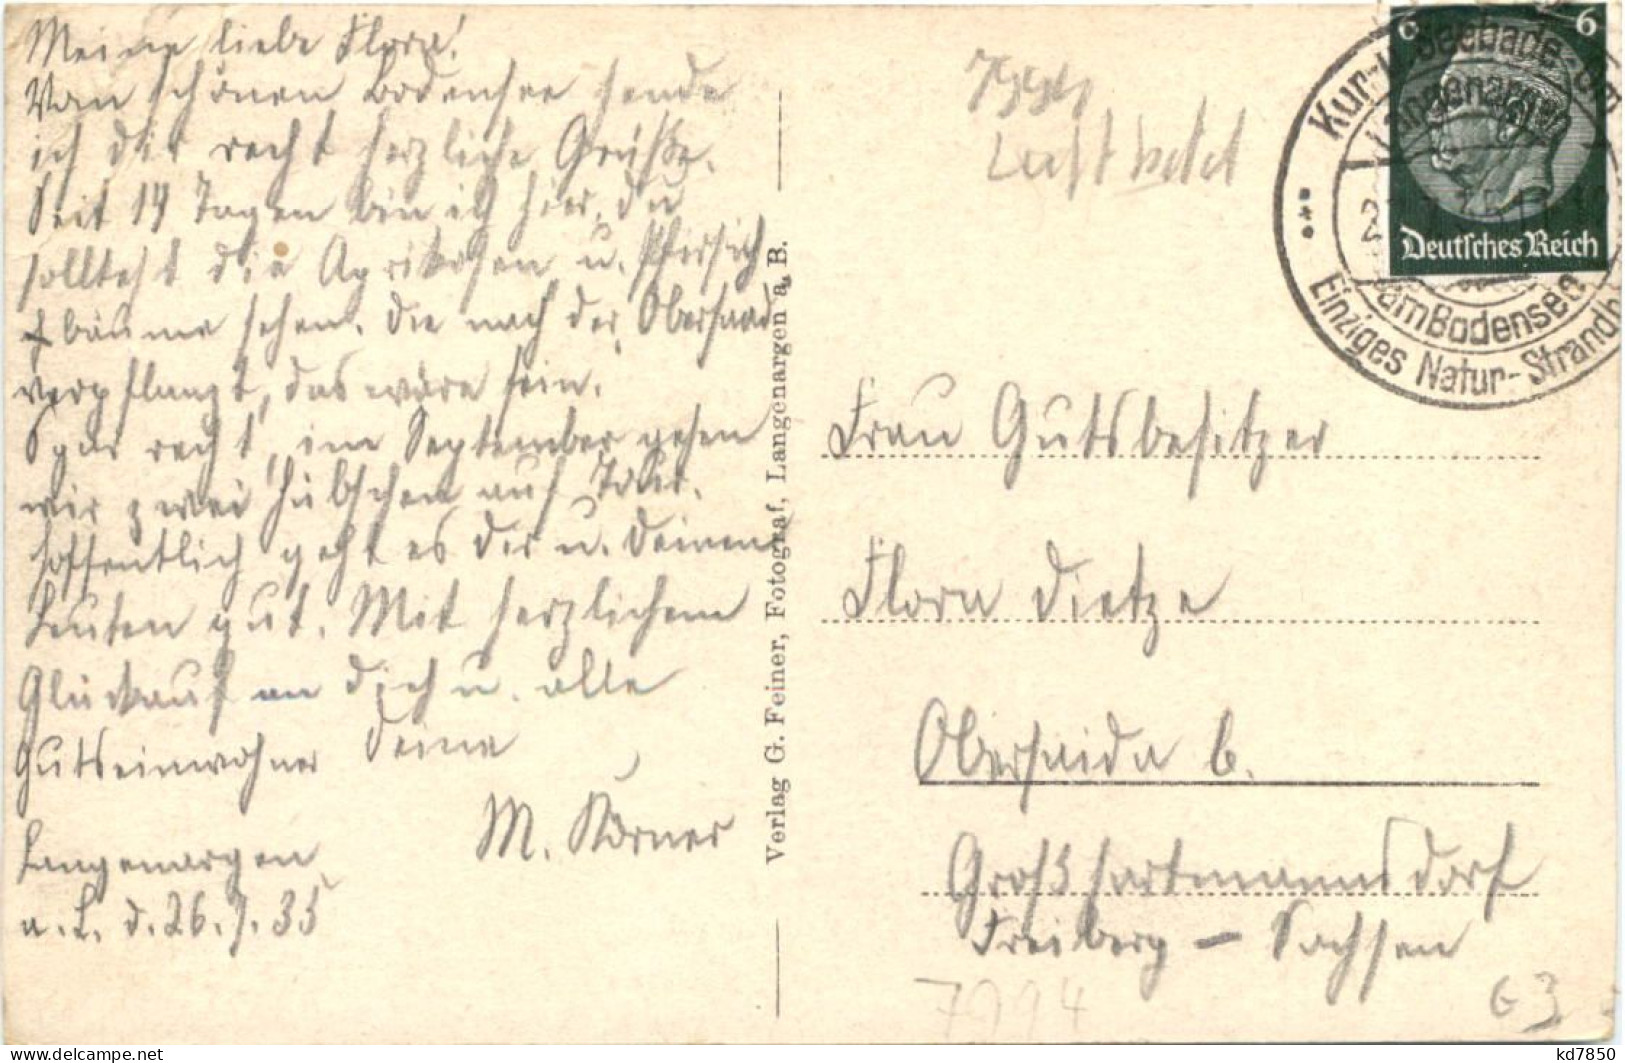 Meine liebe Flora!
Vom schönen Bodensee sende
ich dir recht herzliche Grüße.
Seit 14 Tagen bin ich hier, du
solltest die Aprikosen u. Pfirsich
bäume sehen. Die nach der Obersaida
verpflanzt, das wäre fein.
Spar recht, im September gehen
wir zwei hübschen auf Tour.
Hoffentlich geht es Dir u. Deinen
Leuten gut. Mit herzlichem
Glückauf an dich u. alle
Gutseinwohner Deine
M. Körner
Langenargen
d. 26.7.35
Verlag G. Feiner, Fotograf, Langenargen a. B.
Luftbild
6 6
Deutsches Reich
Kur- u. Seebade-Ort
Langenargen
am Bodensee
Einziges Natur-Strandb
Frau Gutsbesitzer
Flora Dietze
Obersaida b.
Großhartmannsdorf
Freiberg – Sachsen
7994
63
kd7850